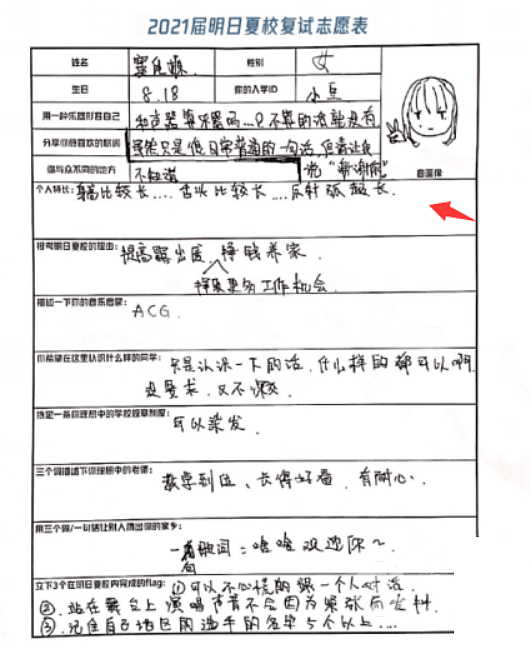 2021届明日夏校复试志愿表
姓名
性别 女
生日 8.18 你的入学ID 小豆
用一种乐器形容自己 和声器算乐器吗...？不算的话就没有
分享你最喜欢的歌词 虽然只是很日常普通的一句话，但请让我
说“谢谢你”
你与众不同的地方 不知道
自画像
个人特长：身高比较长....舌头比较长....反射弧较长.
报考明日夏校的理由：提高露出度、挣钱养家
得到更多工作机会.
描述一下你的音乐启蒙：ACG.
你希望在这里认识什么样的同学：只是认识一下的话，什么样的都可以啊
没要求，又不深交.
选定一条你理想中的学校规章制度：可以染发.
三个词描述下你理想中的老师：教学到位、长得好看，有耐心..
用三个词/一句话让别人猜出你的家乡：
一首歌词：啥啥欢迎你～.
立下3个在明日夏校内完成的flag：①可以不心慌的跟一个人对话.
②.站在舞台上演唱声音不会因为紧张而发抖.
③.记住自己地区的选手的名字5个以上....